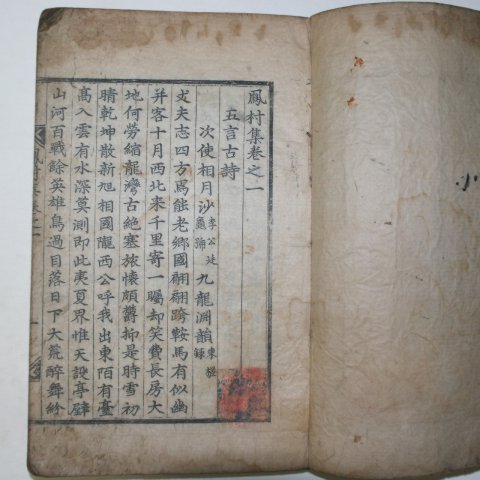 鳳村集卷之一
五言古詩
次使相月沙李公廷龜號九龍淵韻東槎錄
丈夫志四方焉能老鄉國翩翩跨鞍馬有似幽
并客十月西北來千里寄一矚却笑費長房大
地何勞縮龍灣古絶塞旅懷頗鬱抑是時雪初
晴乾坤散新旭相國隴西公呼我出東陌有臺
高入雲有水深莫測即此夷夏界惟天設亭壁
山河百戰餘英雄鳥過目落日下大荒醉舞紛